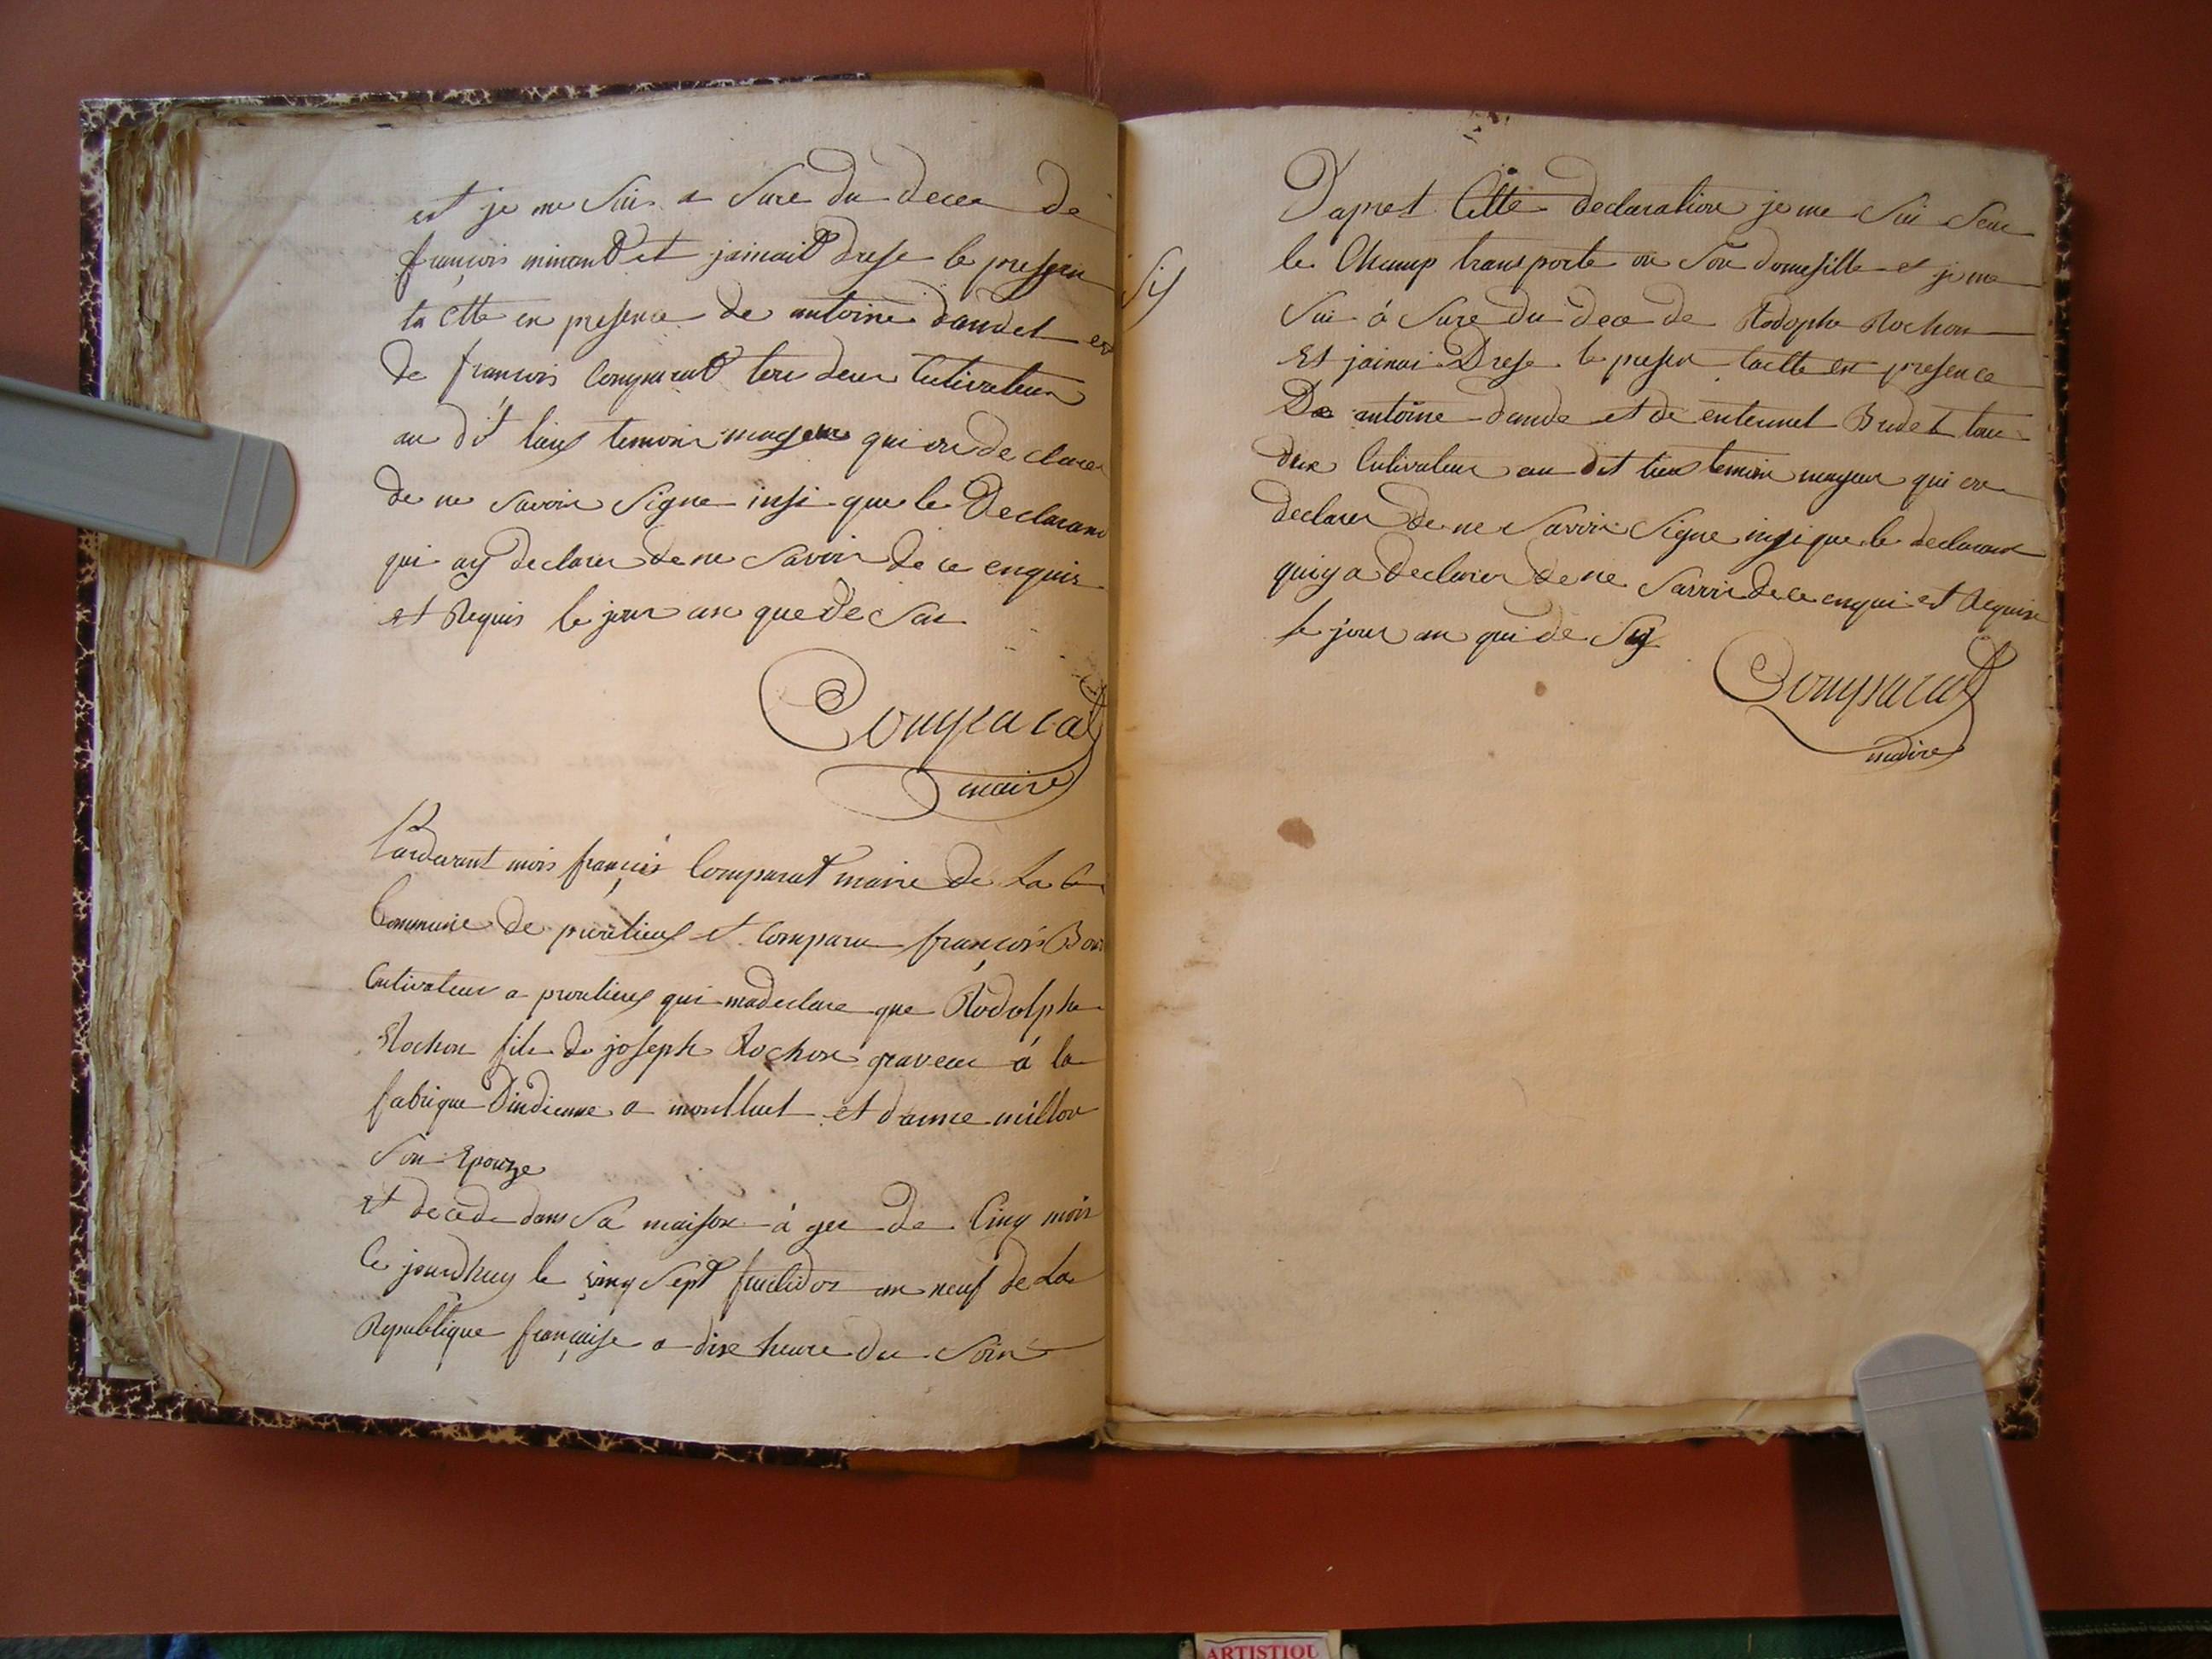 est je me suis a sure du decee de
françois minant et jaimait drese le presen
ta ctte en presence de antoine daudet et
de françois Comparat tou deux Cultivateur
au dit lieux temoin mageur qui on declarer
de ne savoir signe insi que le Declarant
qui ay declarer de ne savoir de ce enquis
et Requis le jour an que de sus
Comparat
maire
Pardevant mois françois Comparat maire de La
Commune de pizelieux et Comparu françois Bon
Cultivateur a pizelieux qui madeclare que Rodolphe
Rochon fils de joseph Rochon graveur à la
fabrique Dindienne a montluel et danne millon
Son Epouze
et decede dans sa maison à gee de Cinq mois
Ce jourdhuy le vinq sept fructidor an neuf de La
Republique françaisse a dixe heure du Soir
Dapret Cette declaration je me sui seur
le Champ transporte on son domesille et je me
Sui à Sure du dece de Rodophe Rochon
Et jaimai Drese le presen tactte en presence
De antoine daude et de entennet Budet tou
deux Cultivateur au dit lieux temoin mageur qui on
declarer de ne Savoir Signe insi que le declarant
qui y a declarer de ne Savoir de ce enqui et Requise
le jour an qui de Su
Comparat
maire
ARTISTIQU